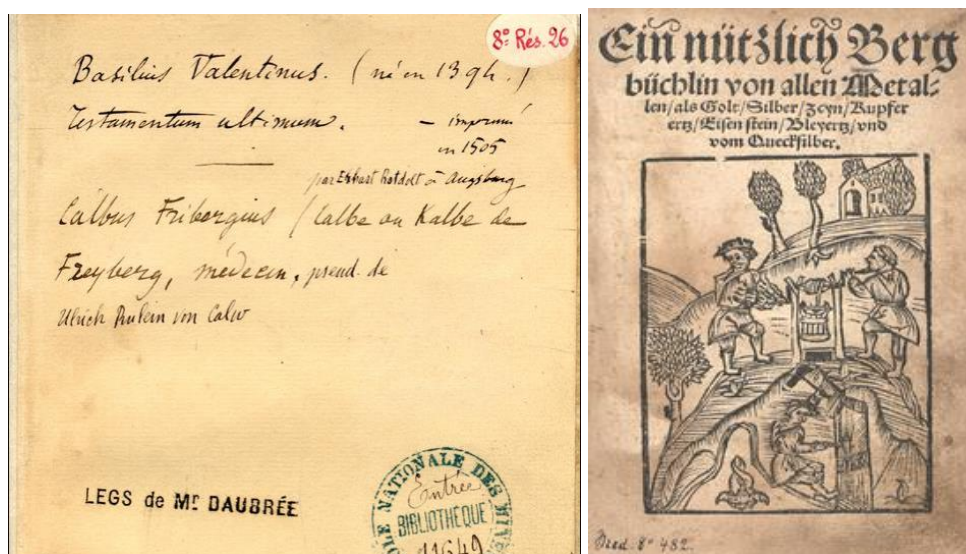 8º Rés. 26
Basilius Valentinus. ( né en 1394. )
Testamentum ultimum. — imprimé
en 1505
par Erhart Ratdolt à Augsburg
Calbus Fribergius / Calbe ou Kalbe de
Freyberg, médecin, pseud. de
Ulrich Rulein von Calw
LEGS de Mr DAUBRÉE
NATIONALE DES MINES
Entrée
BIBLIOTHÈQUE
11649
Ein nützlich Berg
büchlin von allen Metal⸗
len/als Golt/Silber/Zcyn/Kupfer
ertz/Eisen stein/Bleyertz/vnd
vom Quecksilber.
8º 482.